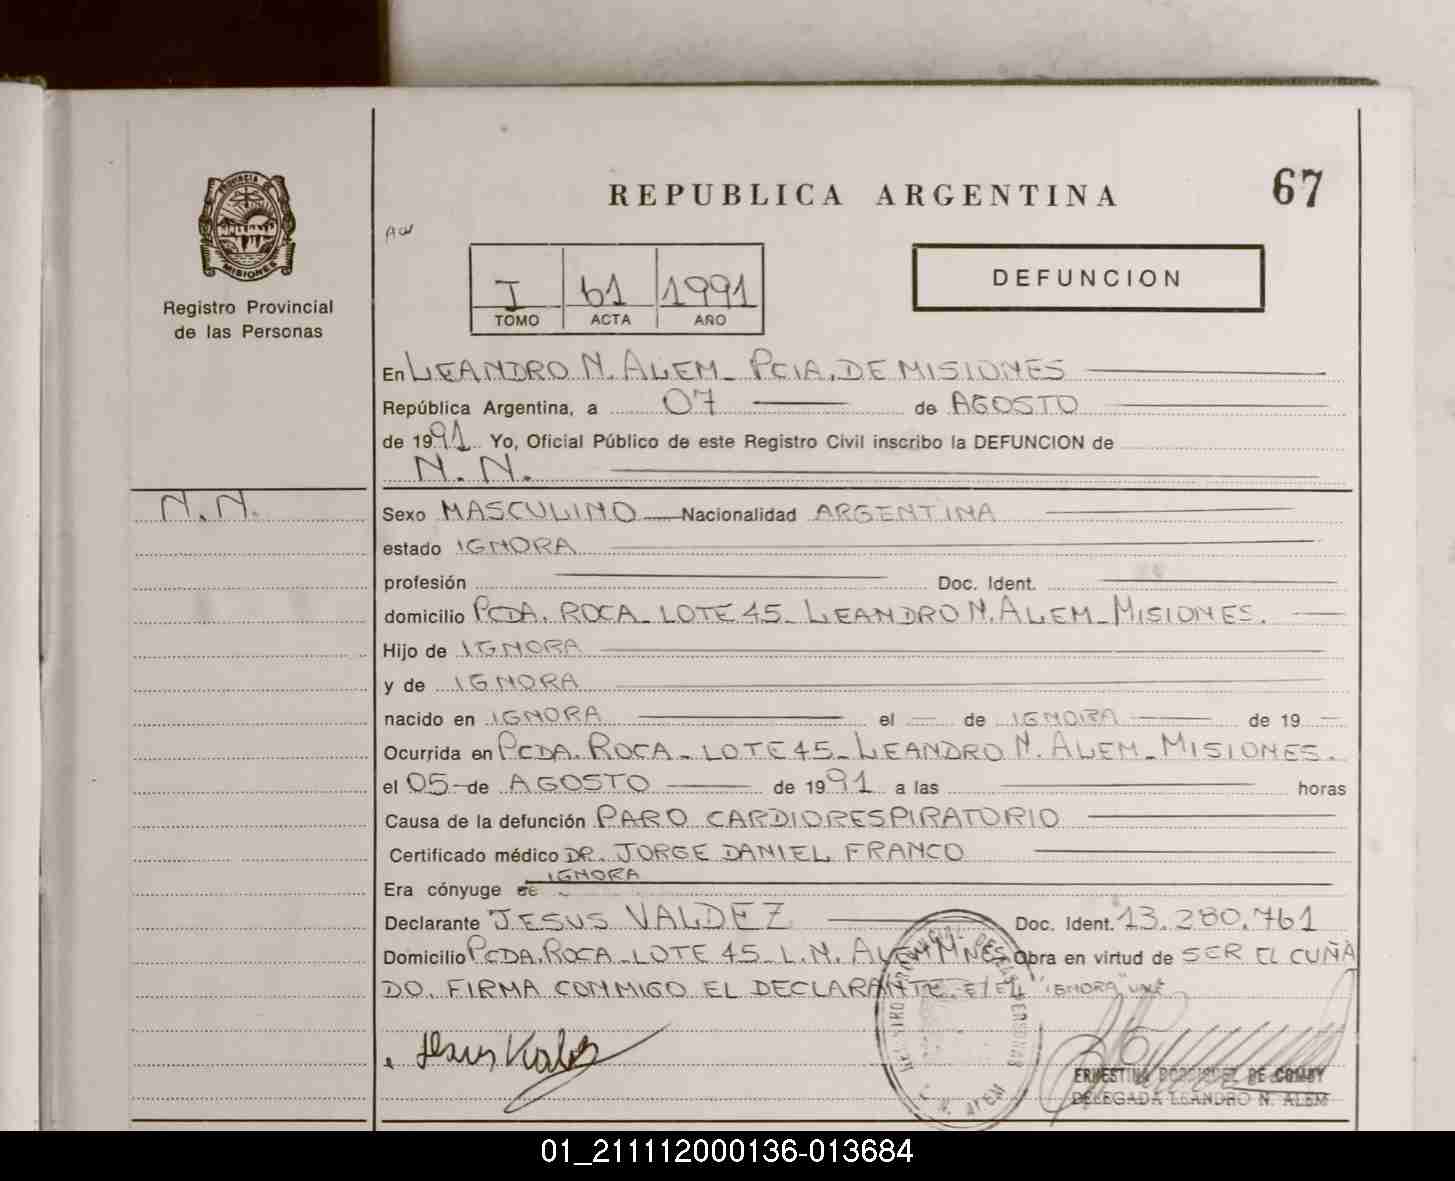 PROVINCIA DE
MISIONES
Registro Provincial
de las Personas
REPUBLICA ARGENTINA
67
AW
I 61 1991
TOMO ACTA AÑO
DEFUNCION
En LEANDRO N. ALEM_ PCIA. DE MISIONES
República Argentina, a 07 de AGOSTO
de 1991 Yo, Oficial Público de este Registro Civil inscribo la DEFUNCION de
N. N.
N. N.
Sexo MASCULINO Nacionalidad ARGENTINA
estado IGNORA
profesión Doc. Ident.
domicilio PCDA. ROCA_ LOTE 45_ LEANDRO N. ALEM_ MISIONES.
Hijo de IGNORA
y de IGNORA
nacido en IGNORA el — de IGNORA de 19 —
Ocurrida en PCDA. ROCA_ LOTE 45_ LEANDRO N. ALEM_ MISIONES.
el 05 de AGOSTO de 1991 a las horas
Causa de la defunción PARO CARDIORESPIRATORIO
Certificado médico DR. JORGE DANIEL FRANCO
IGNORA
Era cónyuge de
Declarante JESUS VALDEZ Doc. Ident. 13.280.761
Domicilio PCDA. ROCA_ LOTE 45_ L. N. ALEM MNES Obra en virtud de SER EL CUÑA
DO. FIRMA CONMIGO EL DECLARANTE. E/EL "IGNORA" VALE
Jesus Valdez
L. N. ALEM
ERNESTINA RODRIGUEZ DE COMBY
DELEGADA LEANDRO N. ALEM
01_211112000136-013684